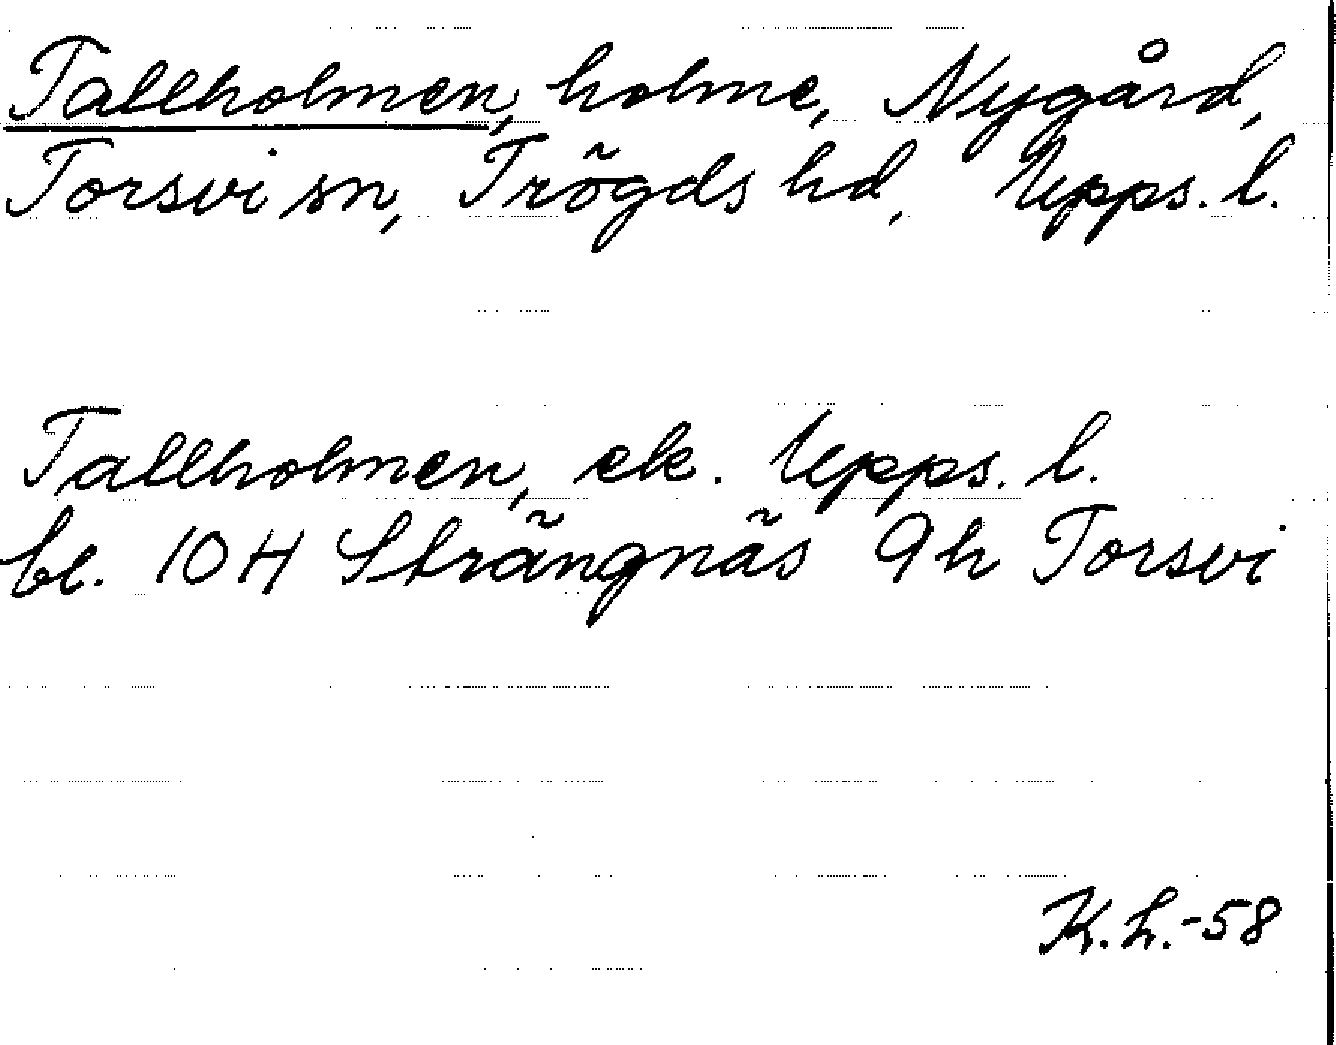 Tallholmen, holme, Nygård,
Torsvi sn, Trögds hd, Upps. l.
Tallholmen, ek. Upps. l.
bl. 10 H Strängnäs 9h Torsvi
K.L.-58